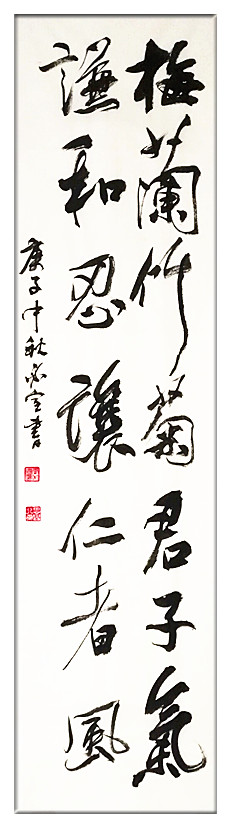 梅蘭竹菊君子氣
謙和忍讓仁者風
庚子中秋必宝書